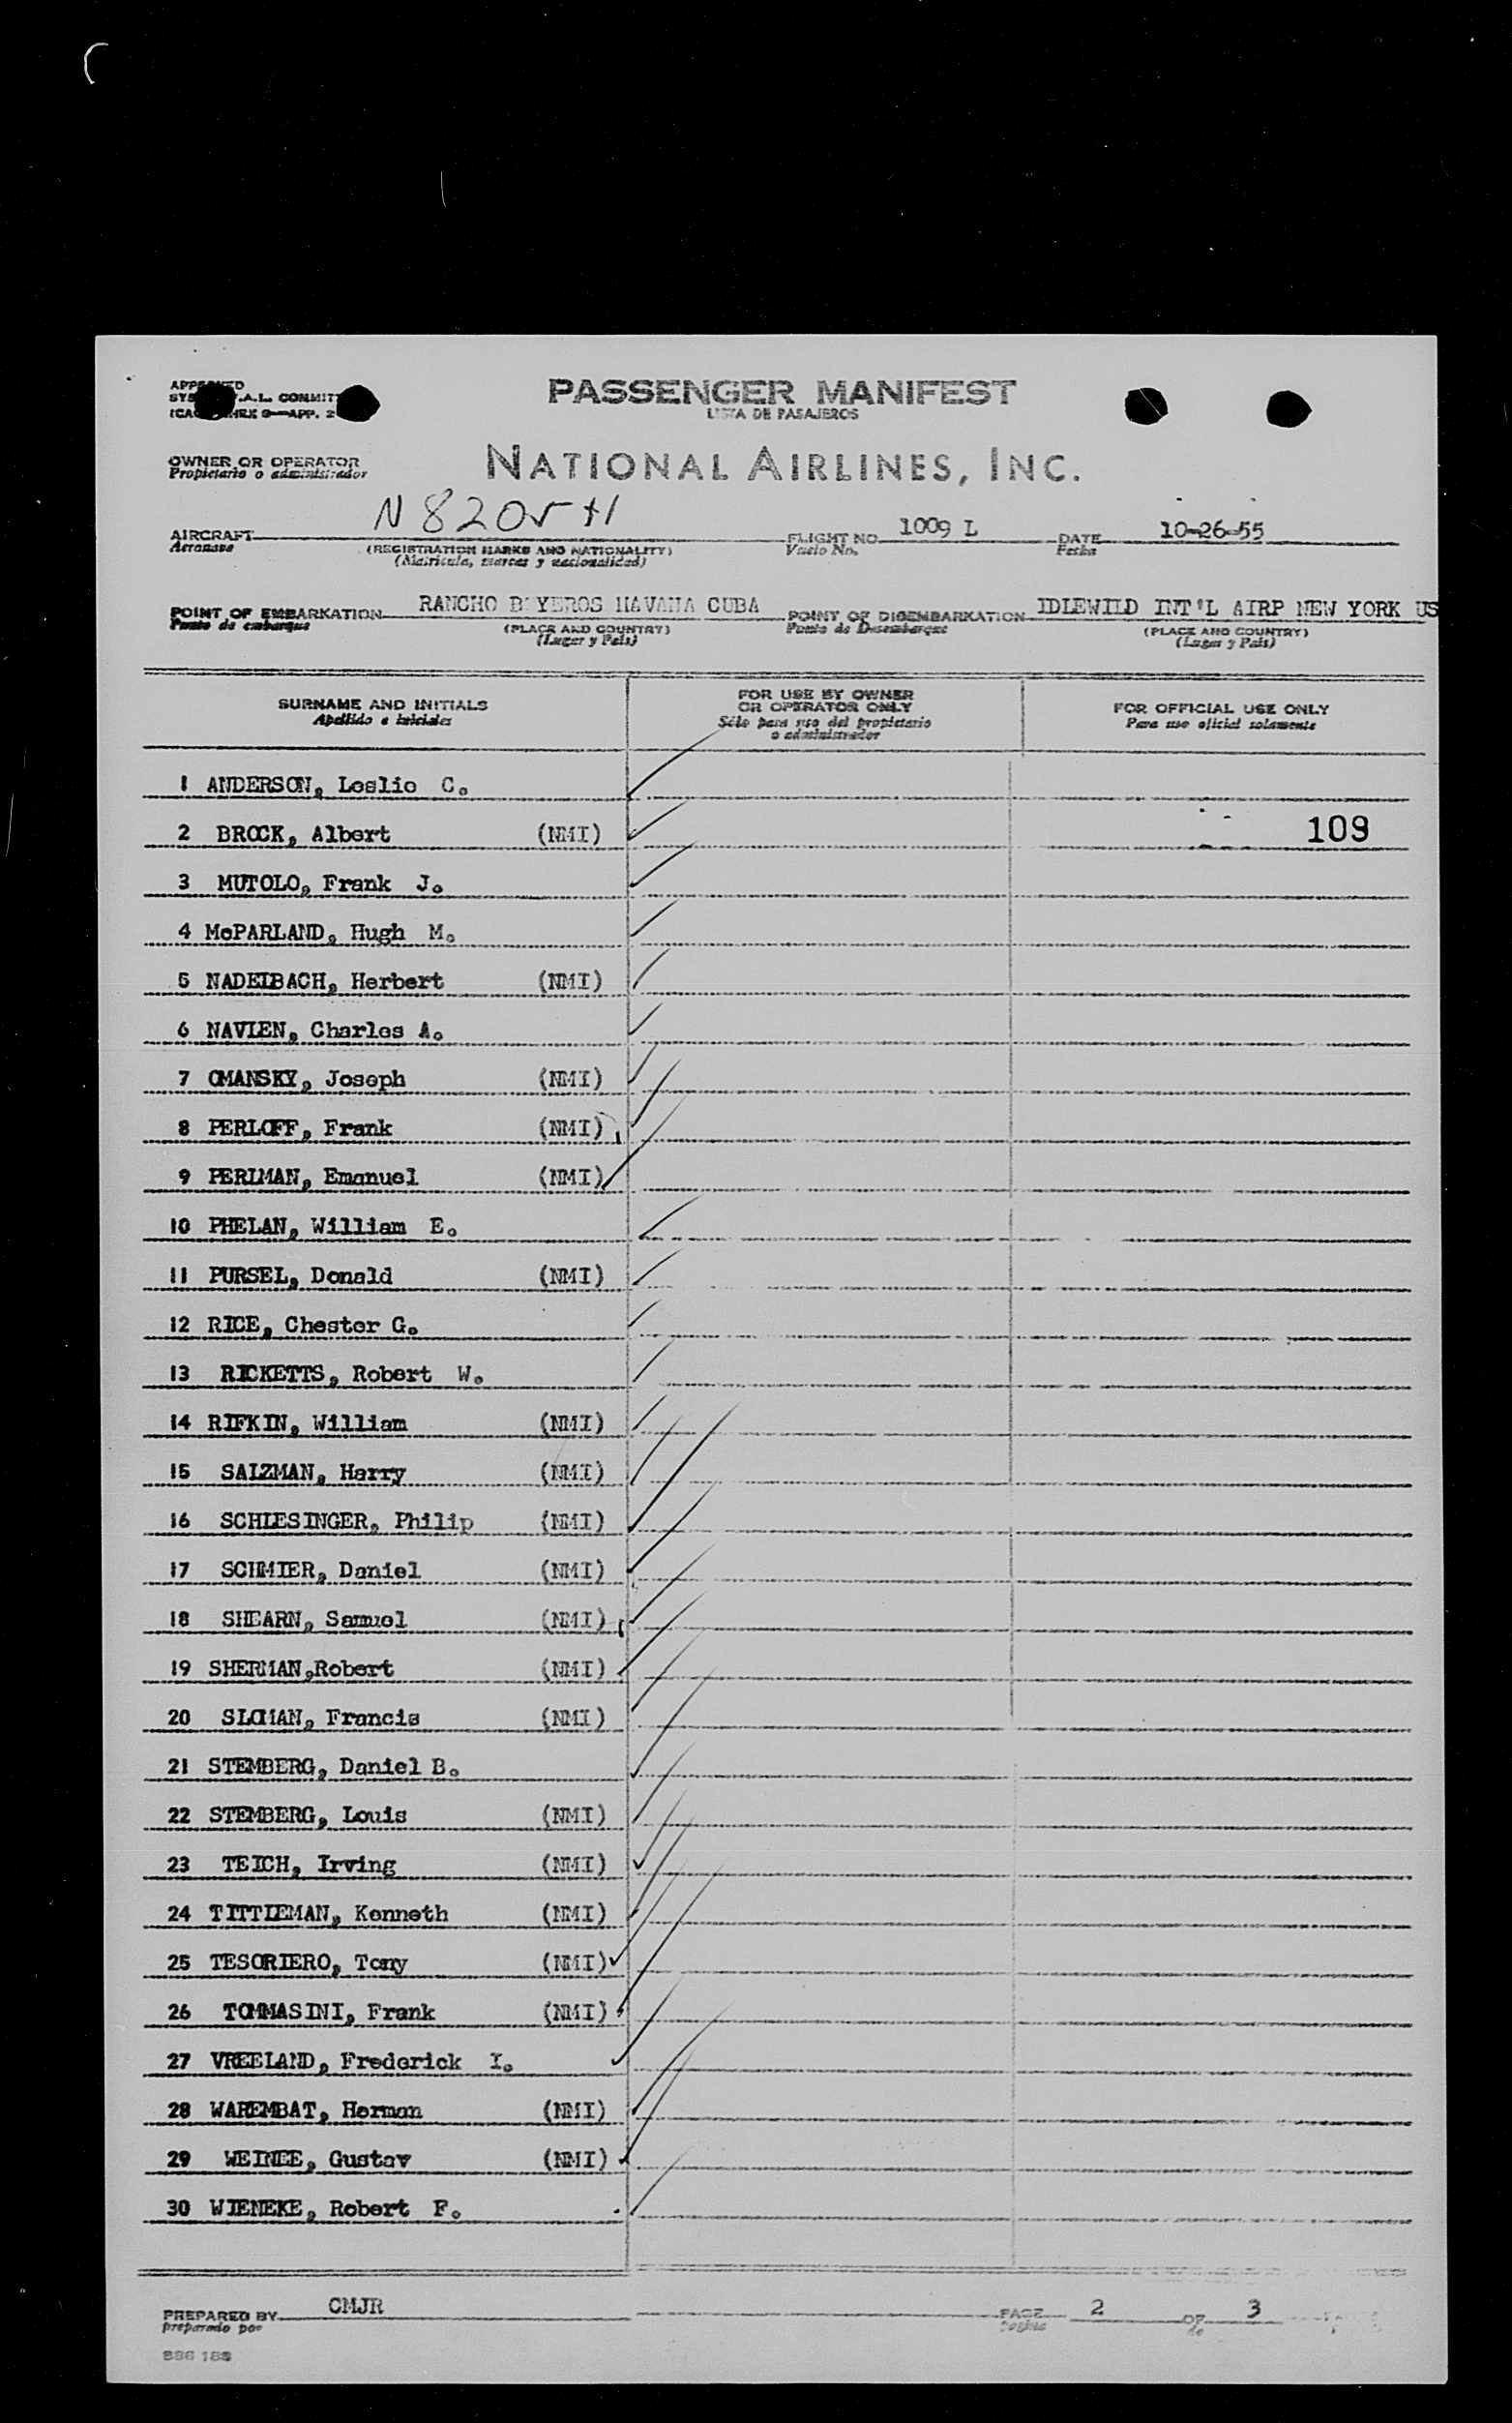 PASSENGER MANIFEST
LISTA DE PASAJEROS
OWNER OR OPERATOR
Propietario o administrador
NATIONAL AIRLINES, INC.
AIRCRAFT N 8205 H FLIGHT NO. 1009 L DATE 10-26-55
Aeronave (REGISTRATION MARKS AND NATIONALITY) Vuelo No. Fecha
(Matricula, marcas y nacionalidad)
POINT OF EMBARKATION RANCHO B YEROS HAVANA CUBA POINT OF DISEMBARKATION IDLEWILD INT'L AIRP NEW YORK US
Punto de embarque (PLACE AND COUNTRY) Punto de Desembarque (PLACE AND COUNTRY)
(Lugar y País) (Lugar y País)
SURNAME AND INITIALS
Apellido e iniciales
FOR USE BY OWNER
OR OPERATOR ONLY
Sólo para uso del propietario
o administrador
FOR OFFICIAL USE ONLY
Para uso oficial solamente
1 ANDERSON, Leslie C.
2 BROCK, Albert (NMI) 109
3 MUTOLO, Frank J.
4 McPARLAND, Hugh M.
5 NADELBACH, Herbert (NMI)
6 NAVIEN, Charles A.
7 OMANSKY, Joseph (NMI)
8 PERLOFF, Frank (NMI)
9 PERLMAN, Emanuel (NMI)
10 PHELAN, William E.
11 PURSEL, Donald (NMI)
12 RICE, Chester G.
13 RICKETTS, Robert W.
14 RIFKIN, William (NMI)
15 SALZMAN, Harry (NMI)
16 SCHLESINGER, Philip (NMI)
17 SCHMIER, Daniel (NMI)
18 SHEARN, Samuel (NMI)
19 SHERMAN,Robert (NMI)
20 SLOMAN, Francis (NMI)
21 STEMBERG, Daniel B.
22 STEMBERG, Louis (NMI)
23 TEICH, Irving (NMI)
24 TITTLEMAN, Kenneth (NMI)
25 TESORIERO, Tony (NMI)
26 TOMMASINI, Frank (NMI)
27 VREELAND, Frederick I.
28 WAREMBAT, Herman (NMI)
29 WEINEE, Gustav (NMI)
30 WIENEKE, Robert F.
PREPARED BY CMJR PAGE 2 OF 3
preparado por Pagina de